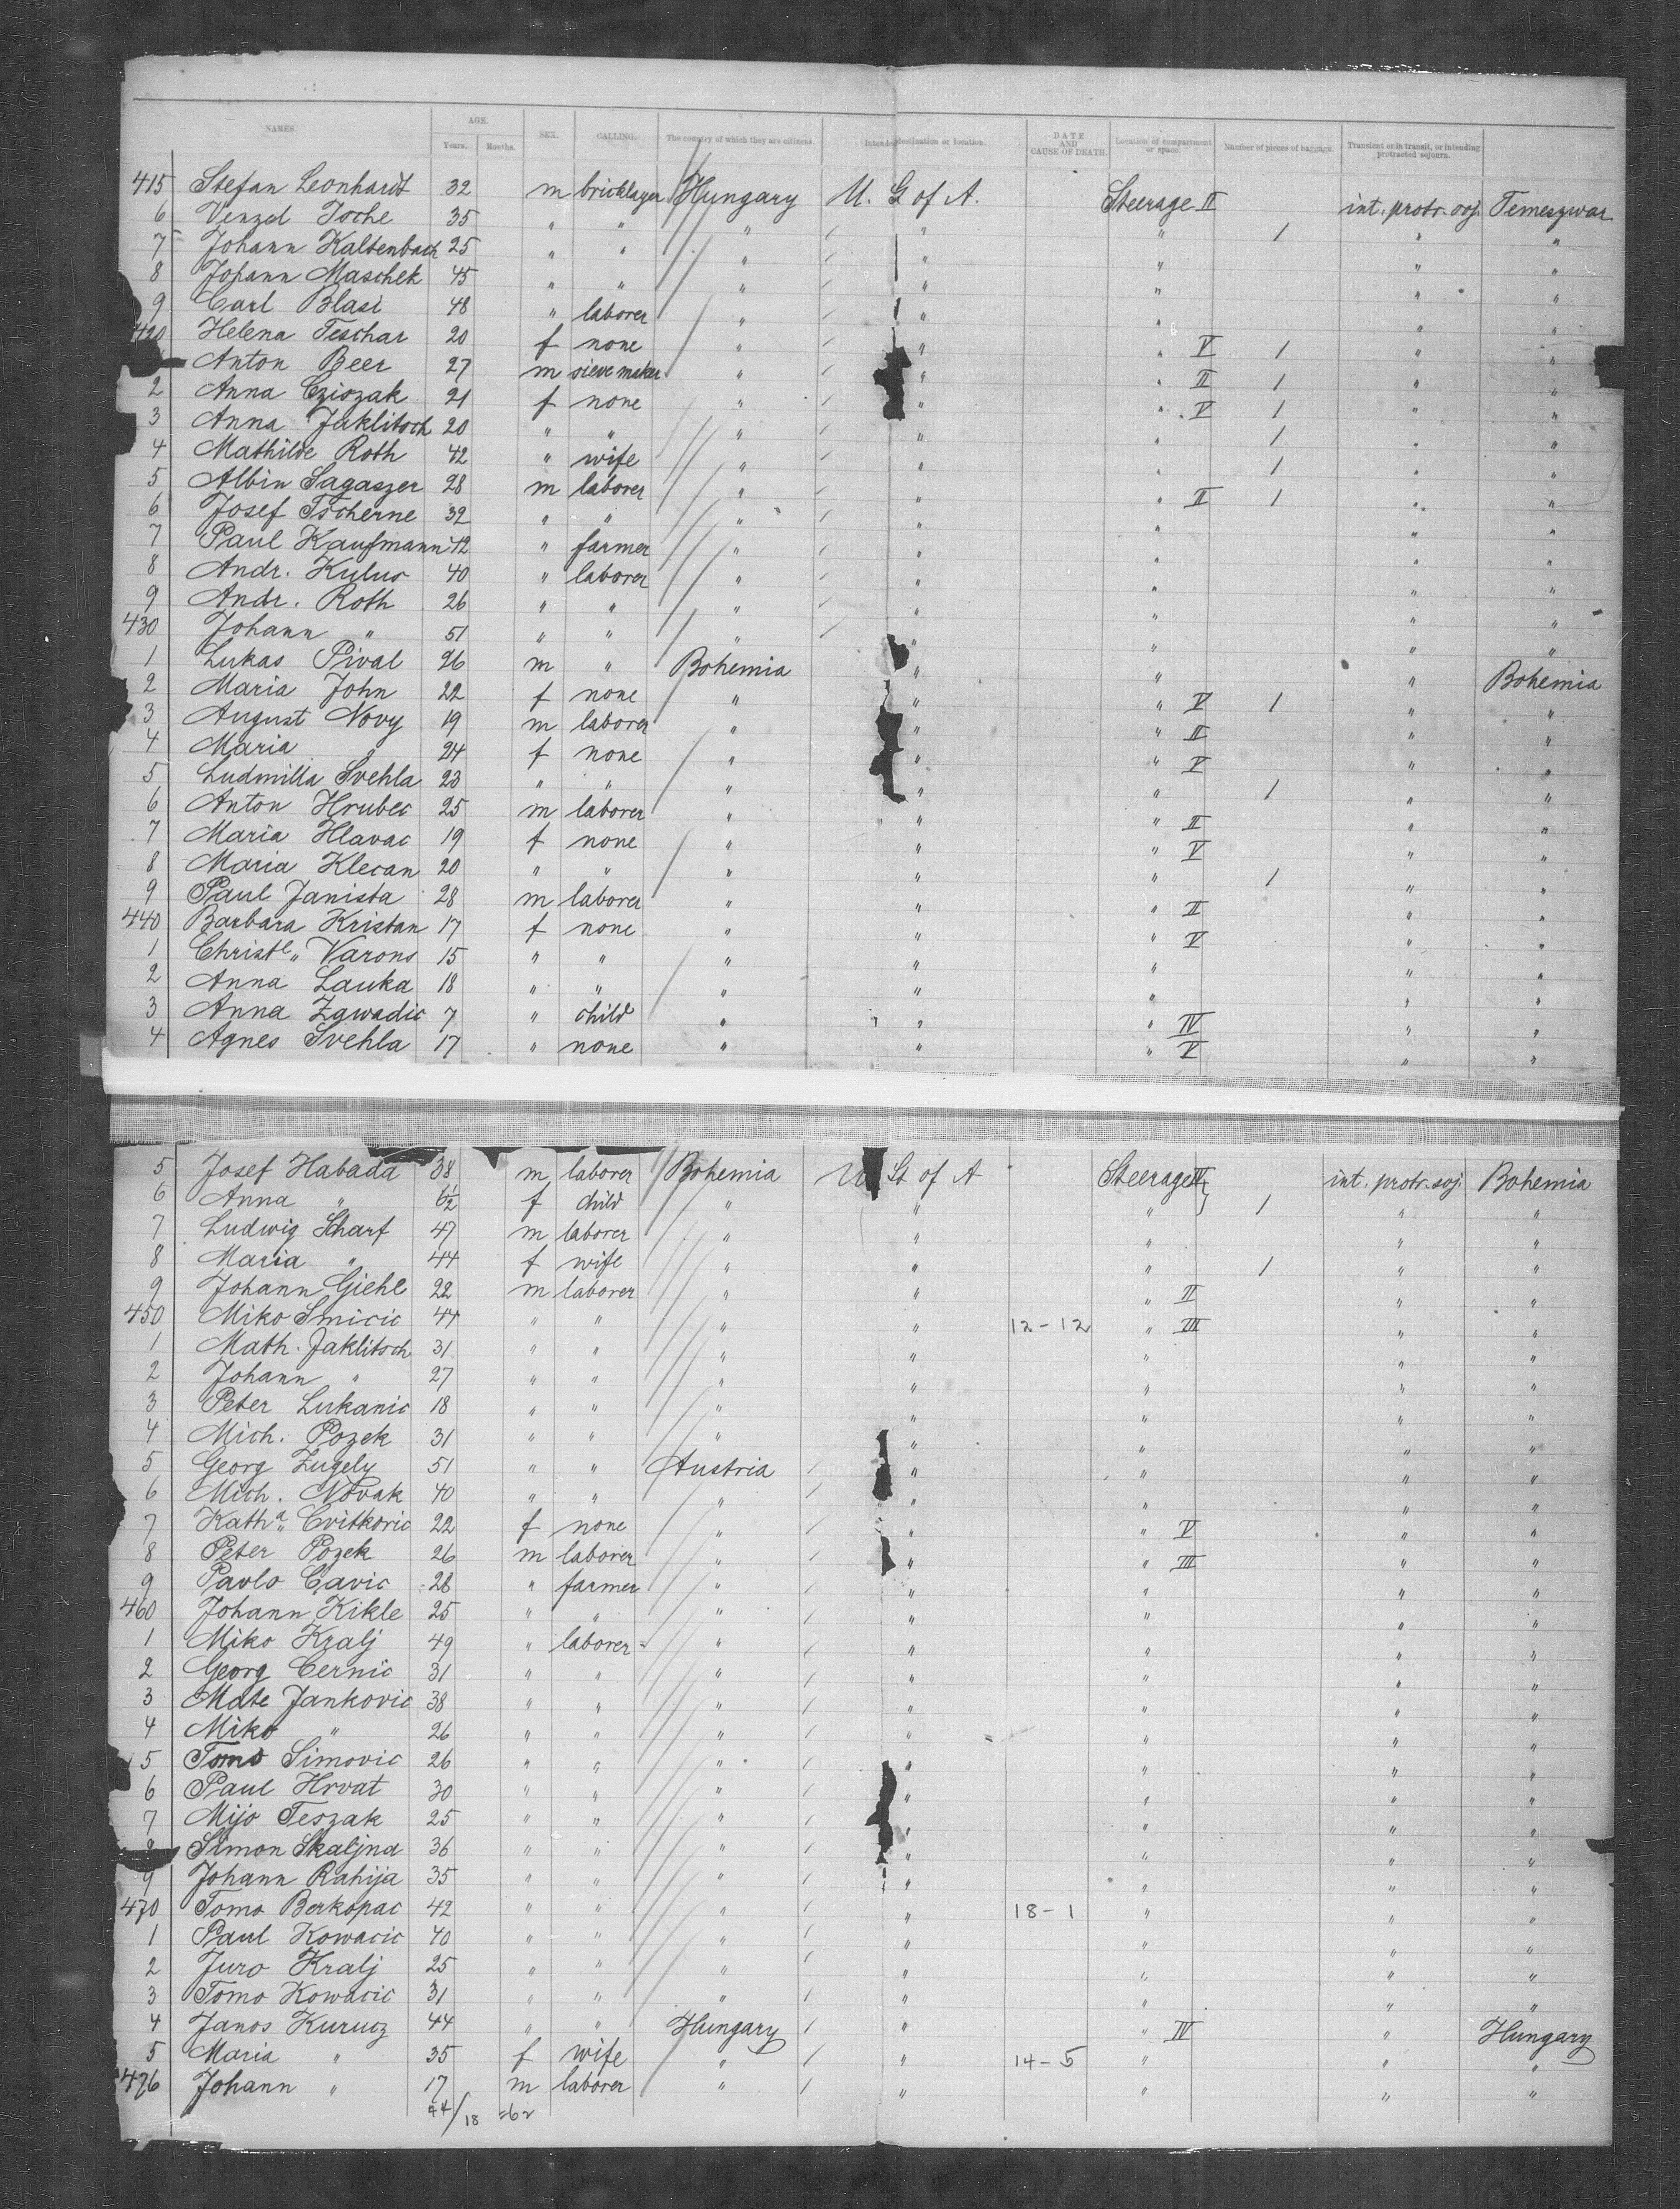 NAMES. AGE. Years. Months. SEX. CALLING. The country of which they are citizens. Intended destination or location. DATE AND CAUSE OF DEATH. Location of compartment or space. Number of pieces of baggage. Transient or in transit, or intending protracted sojourn.
415 Stefan Leonhardt 32 m bricklayer Hungary U. S of A. Steerage II int. protr. soj. Temeszwar
6 Venzel Toche 35 " " " " " 1 " "
7 Johann Kaltenbach 25 " " " " " " "
8 Johann Maschek 45 " " " " " " "
9 Carl Blasi 48 " laborer " " " " "
420 Helena Teschar 20 f none " " " V 1 " "
Anton Beer 27 m sieve maker " " " II 1 " "
2 Anna Cziszak 21 f none " " " V 1 " "
3 Anna Jaklitsch 20 " " " " " 1 " "
4 Mathilde Roth 42 " wife " " " 1 " "
5 Albin Sagaszer 28 m laborer " " " II 1 " "
6 Josef Tscherne 32 " " " " " " "
7 Paul Kaufmann 42 " farmer " " " " "
8 Andr. Kulus 40 " laborer " " " " "
9 Andr. Roth 26 " " " " " " "
430 Johann " 51 " " " " " " "
1 Lukas Pival 26 m " Bohemia " " " Bohemia
2 Maria John 22 f none " " " V 1 " "
3 August Novy 19 m laborer " " " II " "
4 Maria " 24 f none " " " V " "
5 Ludmilla Svehla 23 " " " " " 1 " "
6 Anton Hrubec 25 m laborer " " " II " "
7 Maria Hlavac 19 f none " " " V " "
8 Maria Klecan 20 " " " " " 1 " "
9 Paul Janista 28 m laborer " " " II " "
440 Barbara Kristan 17 f none " " " V " "
1 Christe " Varons 15 " " " " " " "
2 Anna Lauka 18 " " " " " " "
3 Anna Zawadic 7 " child " " " IV " "
4 Agnes Svehla 17 " none " " " V " "
5 Josef Habada 38 m laborer Bohemia U St of A Steerage IV int. protr. soj. Bohemia
6 Anna " 6½ f child " " " 1 " "
7 Ludwig Scharf 47 m laborer " " " " "
8 Maria " 44 f wife " " " 1 " "
9 Johann Giehl 22 m laborer " " " II " "
450 Miko Smicic 44 " " " " 12-12 " III " "
1 Math. Jaklitsch 31 " " " " " " "
2 Johann " 27 " " " " " " "
3 Peter Lukanic 18 " " " " " " "
4 Mich. Pozek 31 " " " " " " "
5 Georg Zugely 51 " " Austria " " " "
6 Mich. Novak 40 " " " " " " "
7 Katha " Cvitkovic 22 f none " " " V " "
8 Peter Pozek 26 m laborer " " " III " "
9 Pavlo Cavic 28 " farmer " " " " "
460 Johann Kikle 25 " " " " " " "
1 Miko Kralj 49 " laborer " " " " "
2 Georg Cernic 31 " " " " " " "
3 Mate Jankovic 38 " " " " " " "
4 Miko " 26 " " " " " " "
5 Tomo Simovic 26 " " " " " " "
6 Paul Hrvat 30 " " " " " " "
7 Mijo Teszak 25 " " " " " " "
8 Simon Skaljna 36 " " " " " " "
9 Johann Rahija 35 " " " " " " "
470 Tomo Berkopac 42 " " " " 18-1 " " "
1 Paul Kowacic 40 " " " " " " "
2 Juro Kralj 25 " " " " " " "
3 Tomo Kowacic 31 " " " " " " "
4 Janos Kurucz 44 " " Hungary " " IV " Hungary
5 Maria " 35 f wife " " 14-5 " " "
476 Johann " 17 m laborer " " " " "
44/18 =62